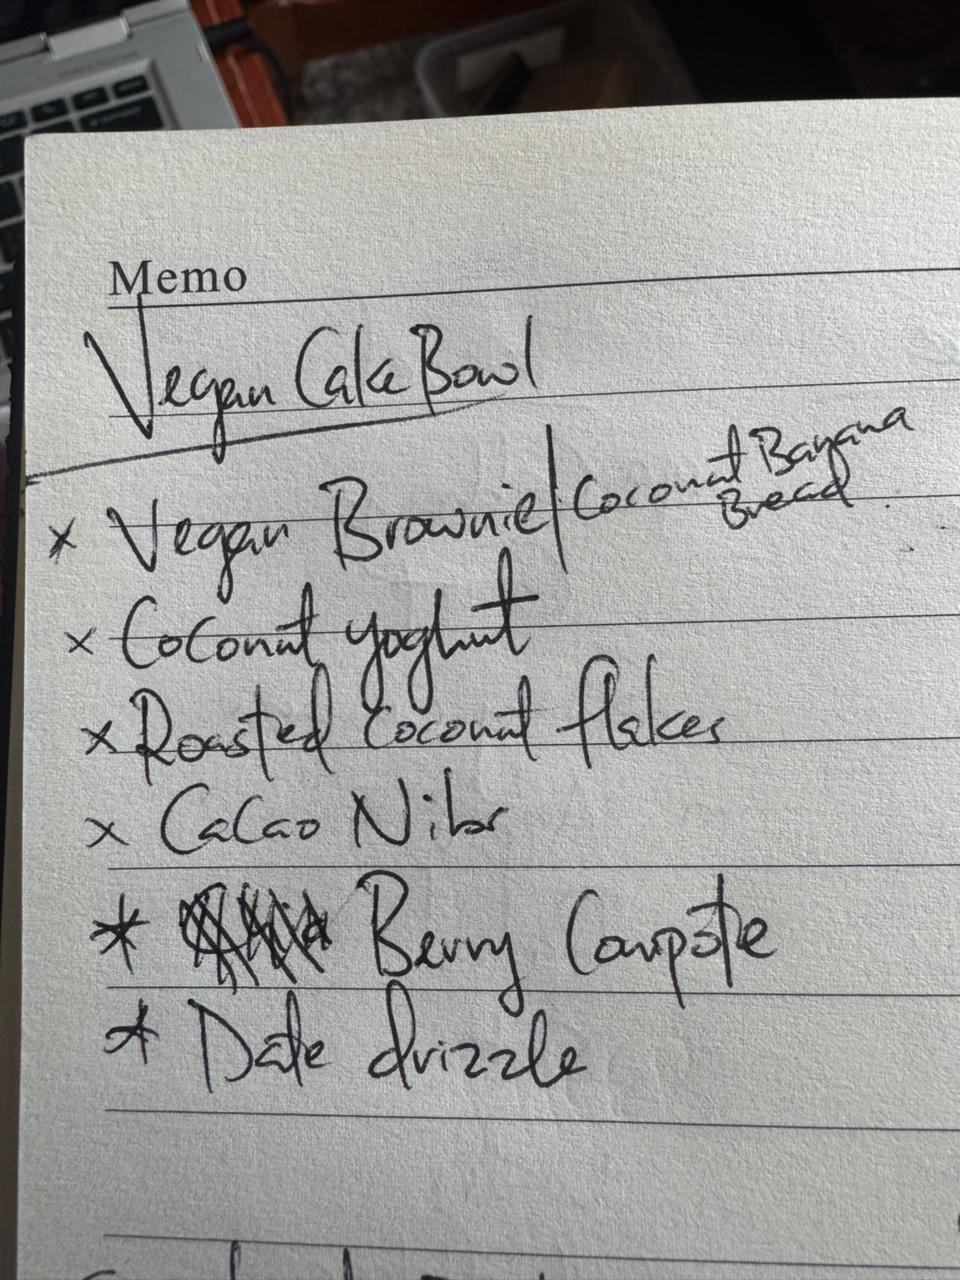 Memo
Vegan Cake Bowl
x Vegan Brownie/Coconut Banana
Bread
x Coconut yoghut
x Roasted Coconut flakes
x CaCao Nibs
* Berry Compote
* Date drizzle